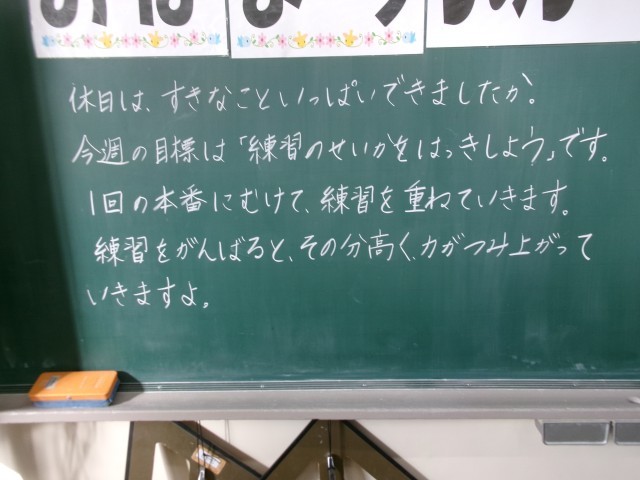 休日は、すきなこといっぱいできましたか。
今週の目標は「練習のせいかをはっきしよう」です。
1回の本番にむけて、練習を重ねていきます。
練習をがんばると、その分高く、力がつみ上がって
いきますよ。